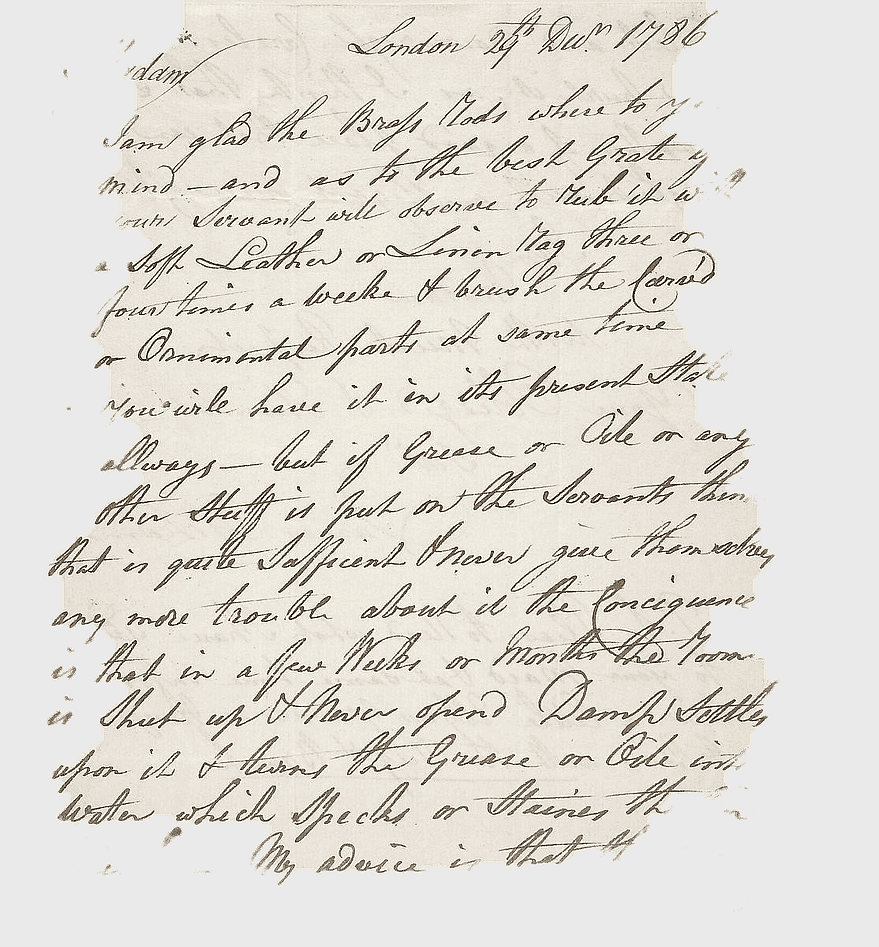 London 29th Decm 1786
adam
I am glad the Brass Rods where to y
mind - and as to the best Grate y
your Servant will observe to Rub it w
a Soft Leather or Linin Rag three or
four times a weeke & brush the Carv'd
or Ornimental parts at same time
You will have it in its present State
allways - but if Grease or Oile or any
other Stuff is put on the Servants then
that is quite Safficient & never give themselves
any more trouble about it the Conciquence
is that in a few Weeks or Months the Room
is Shut up & Never opend Damp Settles
upon it & turns the Grease or Oile into
Water which Specks or Staines th
My advice is that th